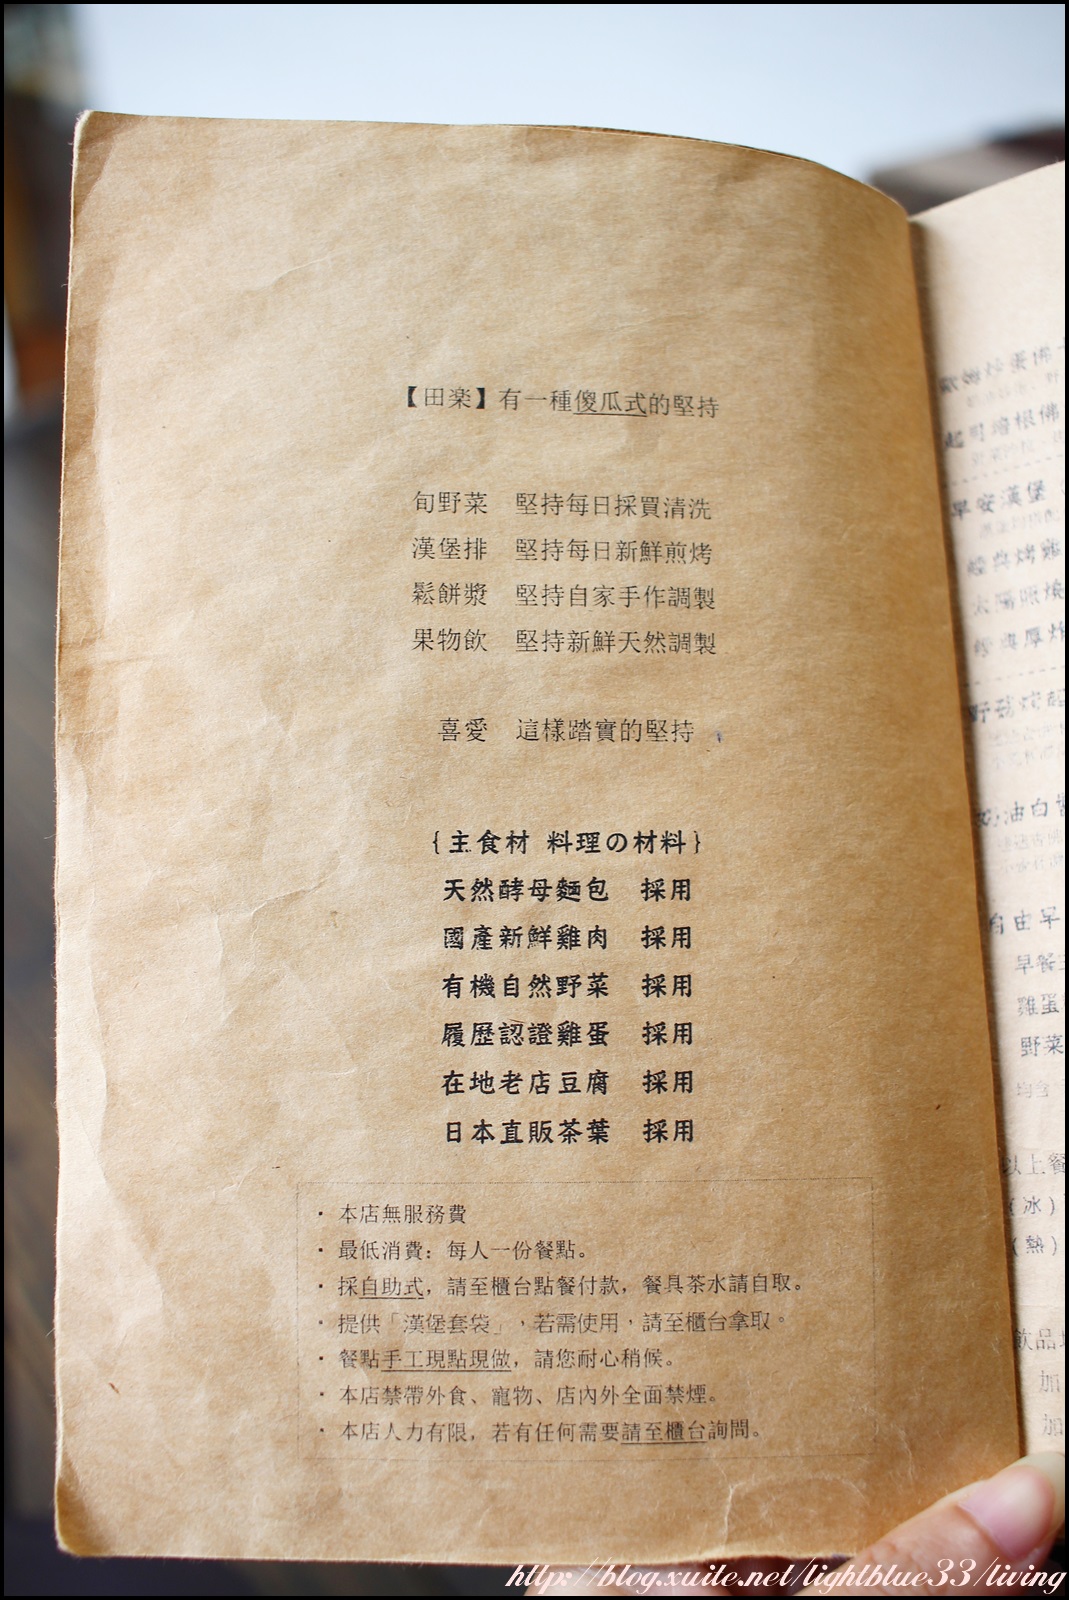 【田楽】有一種傻瓜式的堅持
旬野菜 堅持每日採買清洗
漢堡排 堅持每日新鮮煎烤
鬆餅漿 堅持自家手作調製
果物飲 堅持新鮮天然調製
喜愛 這樣踏實的堅持
{主食材 料理の材料}
天然酵母麵包 採用
國產新鮮雞肉 採用
有機自然野菜 採用
履歷認證雞蛋 採用
在地老店豆腐 採用
日本直販茶葉 採用
・本店無服務費
・最低消費：每人一份餐點。
・採自助式，請至櫃台點餐付款，餐具茶水請自取。
・提供「漢堡套袋」，若需使用，請至櫃台拿取。
・餐點手工現點現做，請您耐心稍候。
・本店禁帶外食、寵物、店內外全面禁煙。
・本店人力有限，若有任何需要請至櫃台詢問。
早安漢堡
奶油白醬
自由早
早餐
雞蛋
野菜
以上餐
(冰)
(熱)
飲品
加
加
http://blog.xuite.net/lightblue33/living